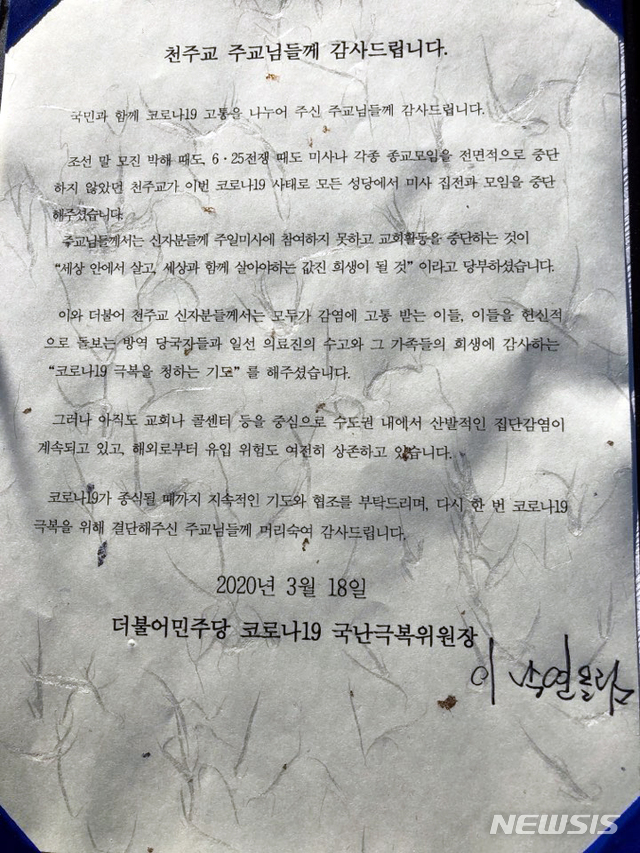 천주교 주교님들께 감사드립니다.
국민과 함께 코로나19 고통을 나누어 주신 주교님들께 감사드립니다.
조선 말 모진 박해 때도, 6·25전쟁 때도 미사나 각종 종교모임을 전면적으로 중단
하지 않았던 천주교가 이번 코로나19 사태로 모든 성당에서 미사 집전과 모임을 중단
해주셨습니다.
주교님들께서는 신자분들께 주일미사에 참여하지 못하고 교회활동을 중단하는 것이
“세상 안에서 살고, 세상과 함께 살아야하는 값진 희생이 될 것” 이라고 당부하셨습니다.
이와 더불어 천주교 신자분들께서는 모두가 감염에 고통 받는 이들, 이들을 헌신적
으로 돌보는 방역 당국자들과 일선 의료진의 수고와 그 가족들의 희생에 감사하는
“코로나19 극복을 청하는 기도” 를 해주셨습니다.
그러나 아직도 교회나 콜센터 등을 중심으로 수도권 내에서 산발적인 집단감염이
계속되고 있고, 해외로부터 유입 위험도 여전히 상존하고 있습니다.
코로나19가 종식될 때까지 지속적인 기도와 협조를 부탁드리며, 다시 한 번 코로나19
극복을 위해 결단해주신 주교님들께 머리숙여 감사드립니다.
2020년 3월 18일
더불어민주당 코로나19 국난극복위원장
이 낙연 올림
NEWSIS